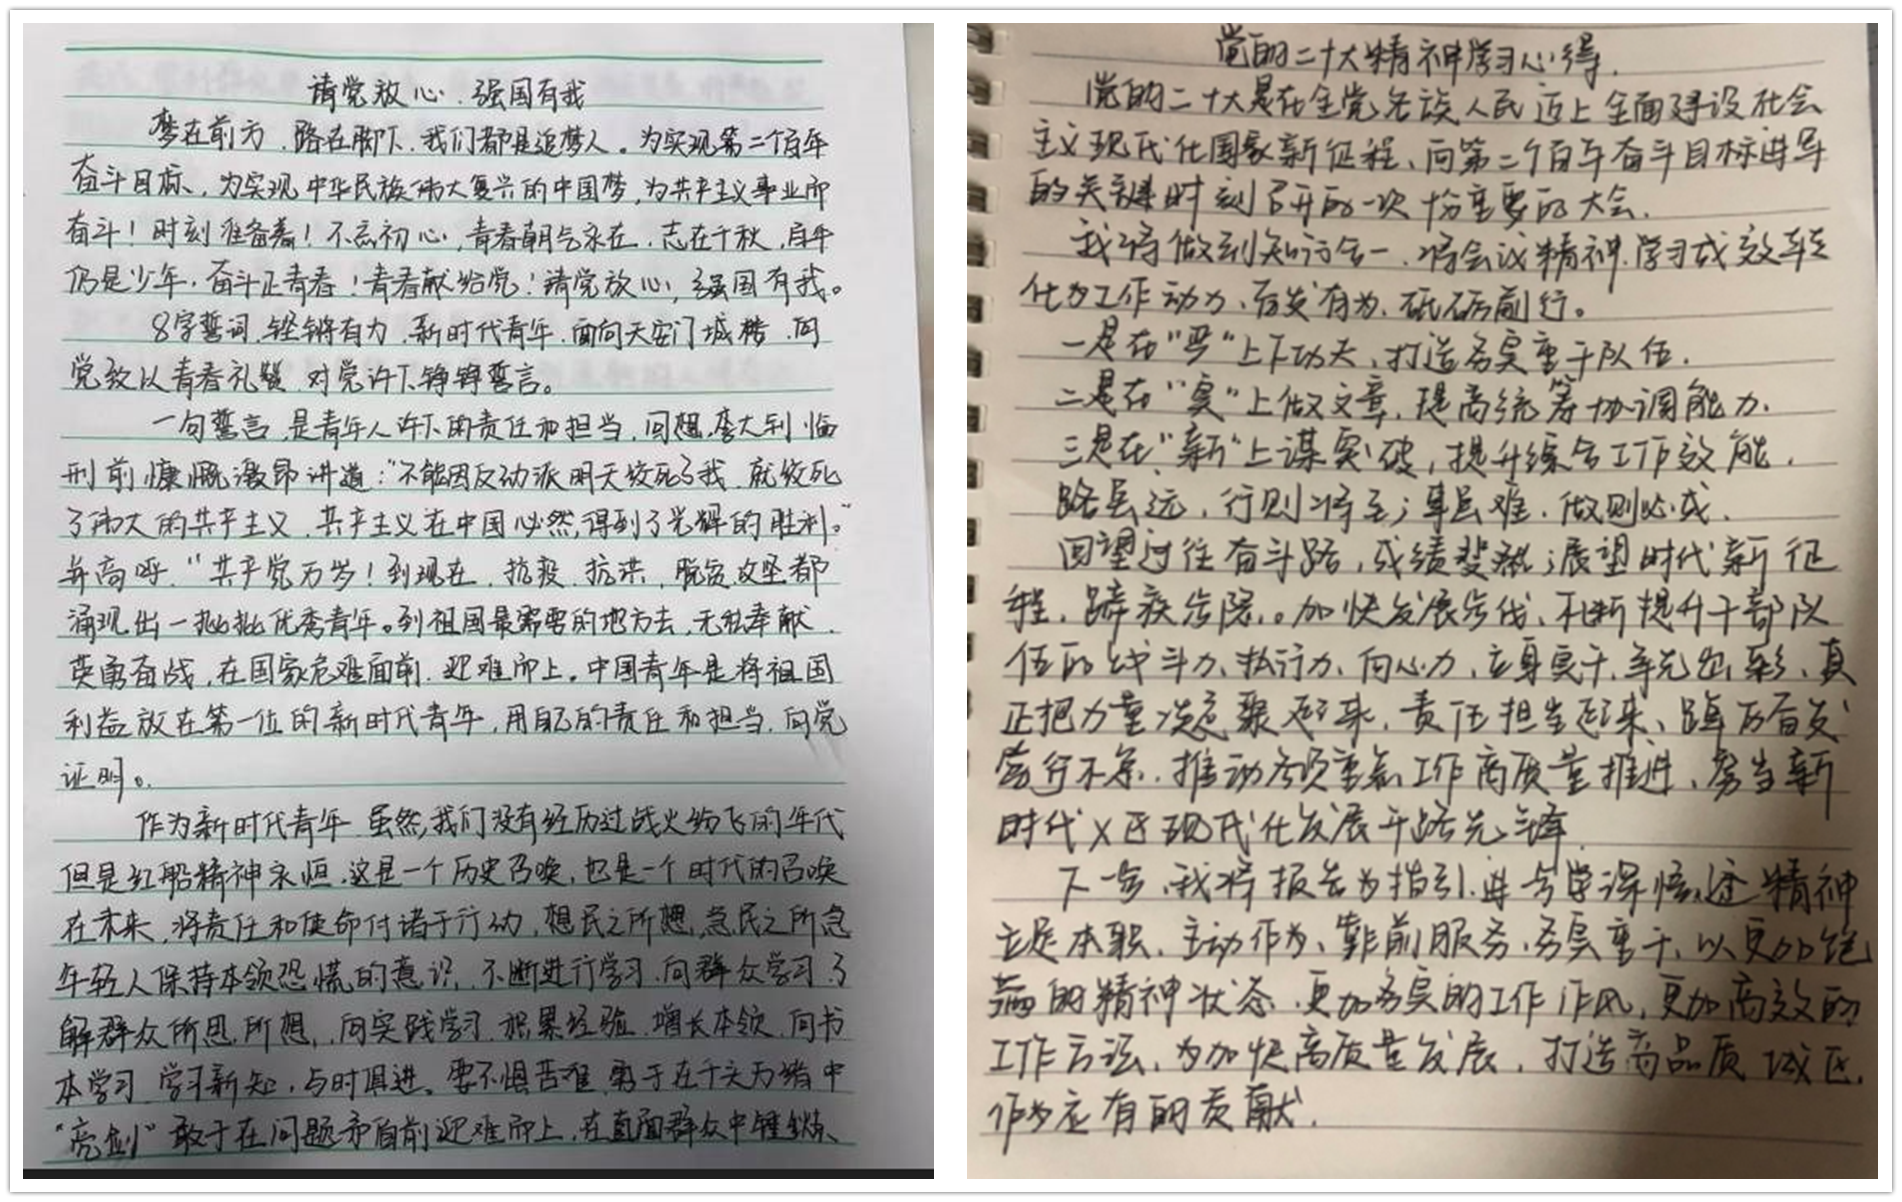 请党放心、强国有我
梦在前方，路在脚下，我们都是追梦人。为实现第二个百年
奋斗目标、为实现中华民族伟大复兴的中国梦，为共产主义事业而
奋斗！时刻准备着！不忘初心，青春朝气永在，志在千秋，百年
仍是少年，奋斗正青春！青春献给党！请党放心，强国有我。
8字誓词，铿锵有力，新时代青年，面向天安门城楼，向
党致以青春礼赞 对党许下铮铮誓言。
一句誓言，是青年人许下的责任和担当，回想，李大钊临
刑前慷慨激昂讲道：“不能因反动派明天绞死了我，就绞死
了伟大的共产主义，共产主义在中国必然得到了光辉的胜利。”
并高呼，“共产党万岁！到现在，抗疫，抗洪，脱贫攻坚都
涌现出一批批优秀青年。到祖国最需要的地方去，无私奉献，
英勇奋战，在国家危难面前，迎难而上。中国青年是将祖国
利益放在第一位的新时代青年，用自己的责任和担当，向党
证明。
作为新时代青年 虽然，我们没有经历过战火纷飞的年代
但是红船精神永恒，这是一个历史召唤，也是一个时代的召唤
在未来，将责任和使命付诸于行动，想民之所想，急民之所急
年轻人保持本领恐慌的意识，不断进行学习，向群众学习了
解群众所思，所想，向实践学习，积累经验，增长本领，向书
本学习 学习新知，与时俱进。要不惧苦难，勇于在千头万绪中
“亮剑”敢于在问题矛盾前迎难而上，在直面群众中锤炼、
党的二十大精神学习心得.
党的二十大是在全党各族人民迈上全面建设社会
主义现代化国家新征程、向第二个百年奋斗目标进军
的关键时刻召开的一次十分重要的大会.
我将做到知行合一，将会议精神，学习成效转
化为工作动力、奋发有为、砥砺前行。
一是在“严”上下功夫，打造务实重干队伍.
二是在“实”上做文章，提高统筹协调能力.
三是在“新”上谋突破，提升综合工作效能.
路虽远，行则将至；事虽难，做则必成.
回望过往奋斗路，成绩斐然；展望时代新征
程，蹄疾步稳，。加快发展步伐，不断提升干部队
伍的战斗力、执行力、向心力，立身实干，争先出彩，真
正把力量凝聚起来，责任担当起来、踔厉奋发
笃行不怠，推动各项重点工作高质量推进、努当新
时代X区现代化发展开路先锋.
下一步，我将报告为指引，进一步学深悟透精神
立足本职，主动作为、靠前服务，务实重干，以更加饱
满的精神状态，更加务实的工作作风，更加高效的
工作方法，为加快高质量发展，打造高品质城区，
作出应有的贡献.